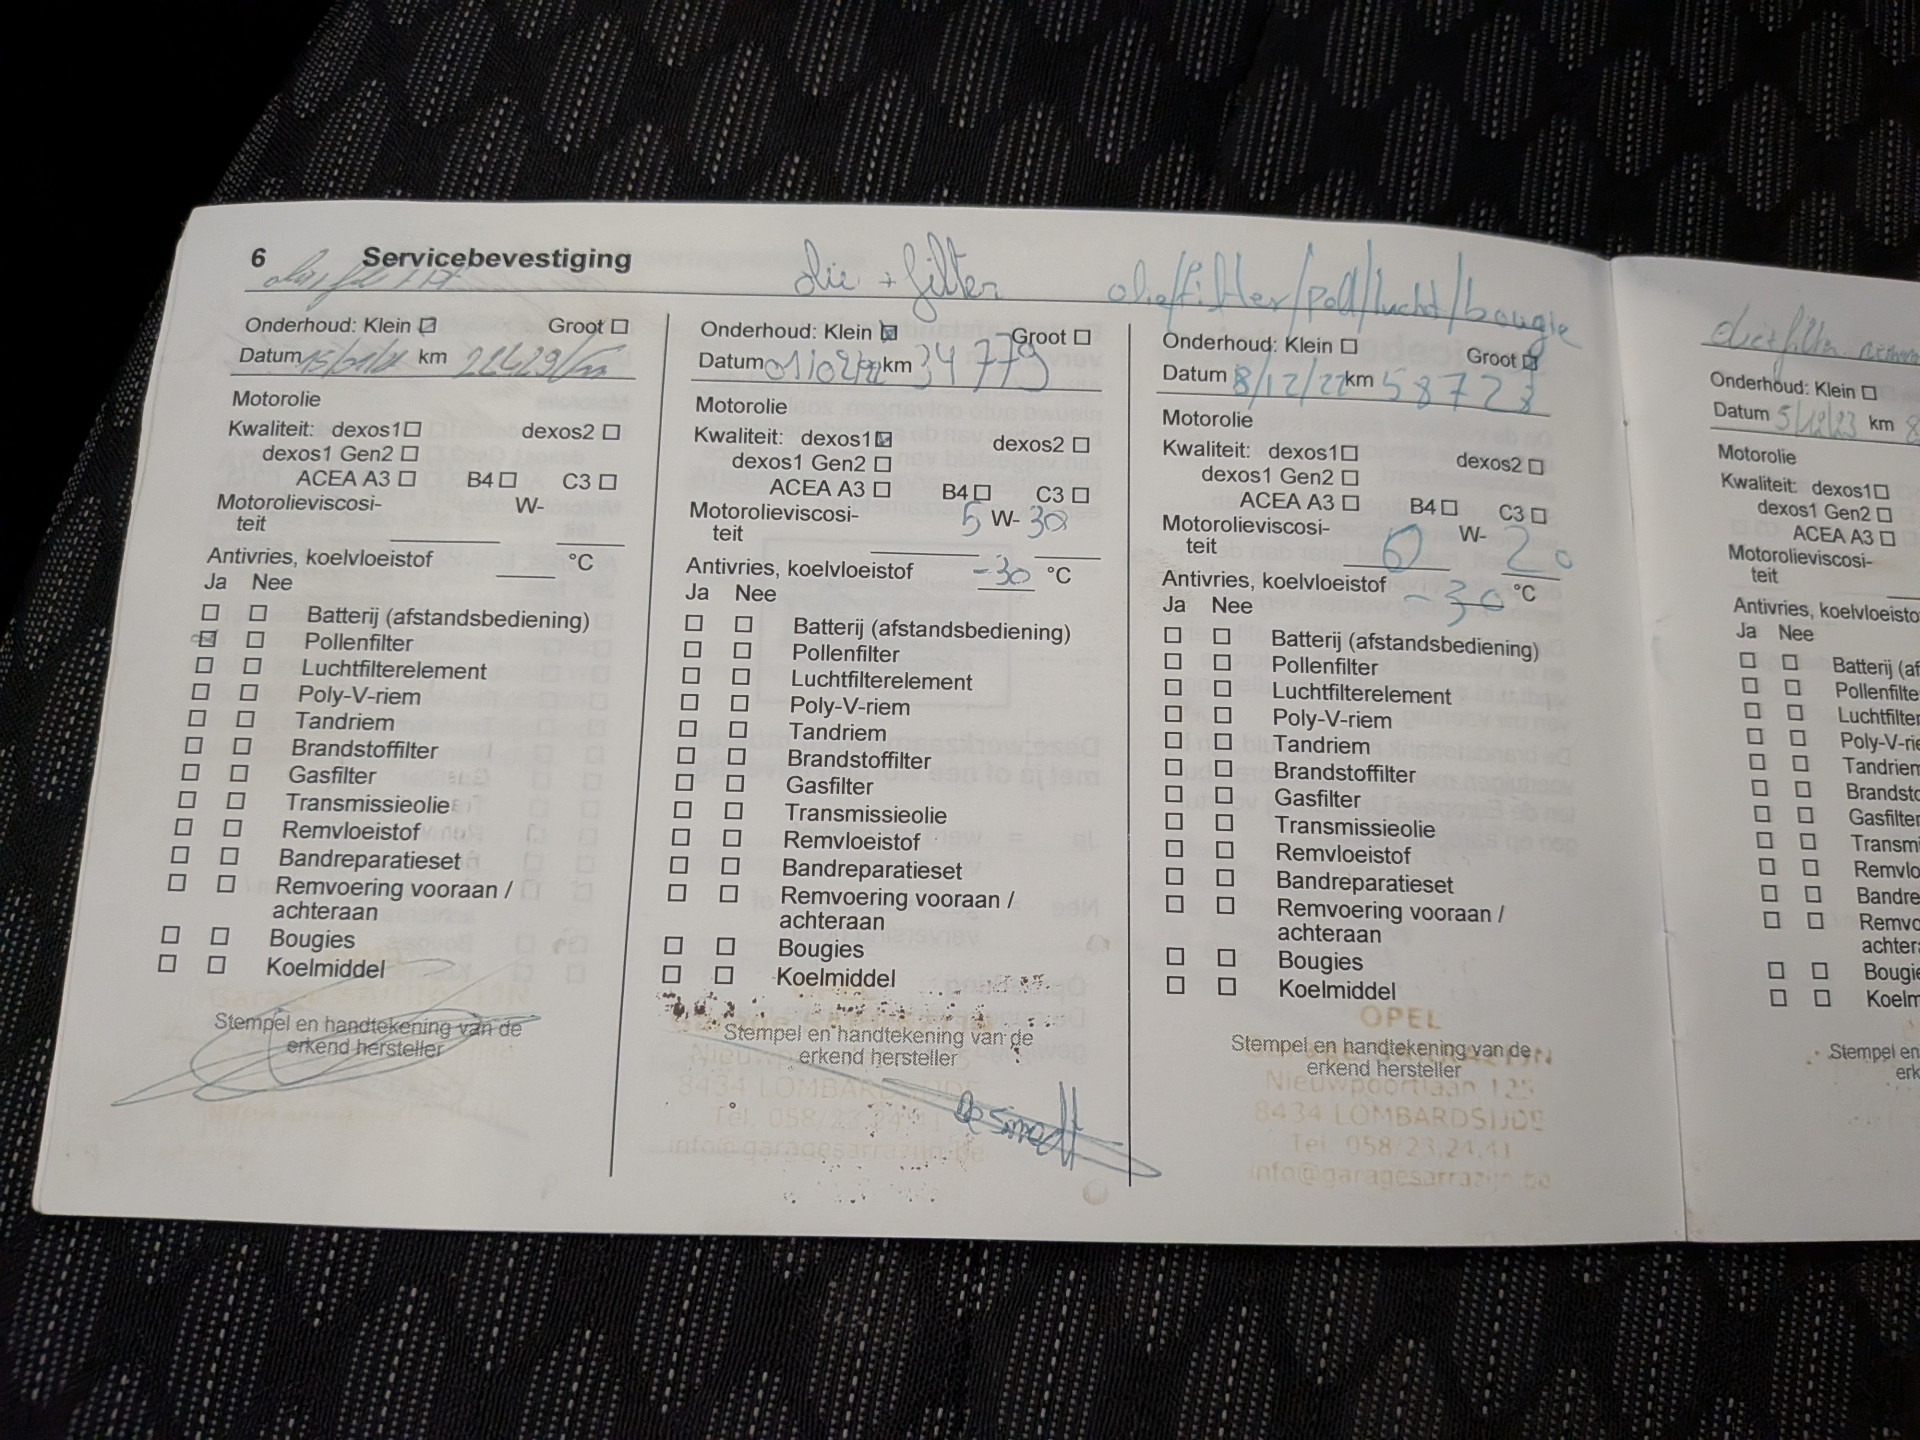 6 Servicebevestiging
Onderhoud: Klein Groot
Datum km
Motorolie
Kwaliteit: dexos1 dexos2
dexos1 Gen2
ACEA A3 B4 C3
Motorolieviscosi- W-
teit
Antivries, koelvloeistof °C
Ja Nee
Batterij (afstandsbediening)
Pollenfilter
Luchtfilterelement
Poly-V-riem
Tandriem
Brandstoffilter
Gasfilter
Transmissieolie
Remvloeistof
Bandreparatieset
Remvoering vooraan /
achteraan
Bougies
Koelmiddel
Stempel en handtekening van de
erkend hersteller
olie + filter
Onderhoud: Klein Groot
Datum km 34779
Motorolie
Kwaliteit: dexos1 dexos2
dexos1 Gen2
ACEA A3 B4 C3
Motorolieviscosi- 5 W- 30
teit
Antivries, koelvloeistof -30 °C
Ja Nee
Batterij (afstandsbediening)
Pollenfilter
Luchtfilterelement
Poly-V-riem
Tandriem
Brandstoffilter
Gasfilter
Transmissieolie
Remvloeistof
Bandreparatieset
Remvoering vooraan /
achteraan
Bougies
Koelmiddel
Stempel en handtekening van de
erkend hersteller
8434 LOMBARDSIJDE
Tel. 058/23.24.41
info@garagesarrazijn.be
olie/filter/poll/lucht/bougie
Onderhoud: Klein Groot
Datum 8/12/22 km 58723
Motorolie
Kwaliteit: dexos1 dexos2
dexos1 Gen2
ACEA A3 B4 C3
Motorolieviscosi- 0 W- 20
teit
Antivries, koelvloeistof -30 °C
Ja Nee
Batterij (afstandsbediening)
Pollenfilter
Luchtfilterelement
Poly-V-riem
Tandriem
Brandstoffilter
Gasfilter
Transmissieolie
Remvloeistof
Bandreparatieset
Remvoering vooraan /
achteraan
Bougies
Koelmiddel
OPEL
Stempel en handtekening van de
erkend hersteller
Nieuwpoortlaan 125
8434 LOMBARDSIJDE
Tel. 058/23.24.41
info@garagesarrazijn.be
Onderhoud: Klein
Datum 5/12/23 km 8
Motorolie
Kwaliteit: dexos1
dexos1 Gen2
ACEA A3
Motorolieviscosi-
teit
Antivries, koelvloeisto
Ja Nee
Batterij (af
Pollenfilte
Luchtfilter
Poly-V-rie
Tandriem
Brandsto
Gasfilter
Transmi
Remvlo
Bandre
Remvo
achter
Bougie
Koelm
Stempel en
erk